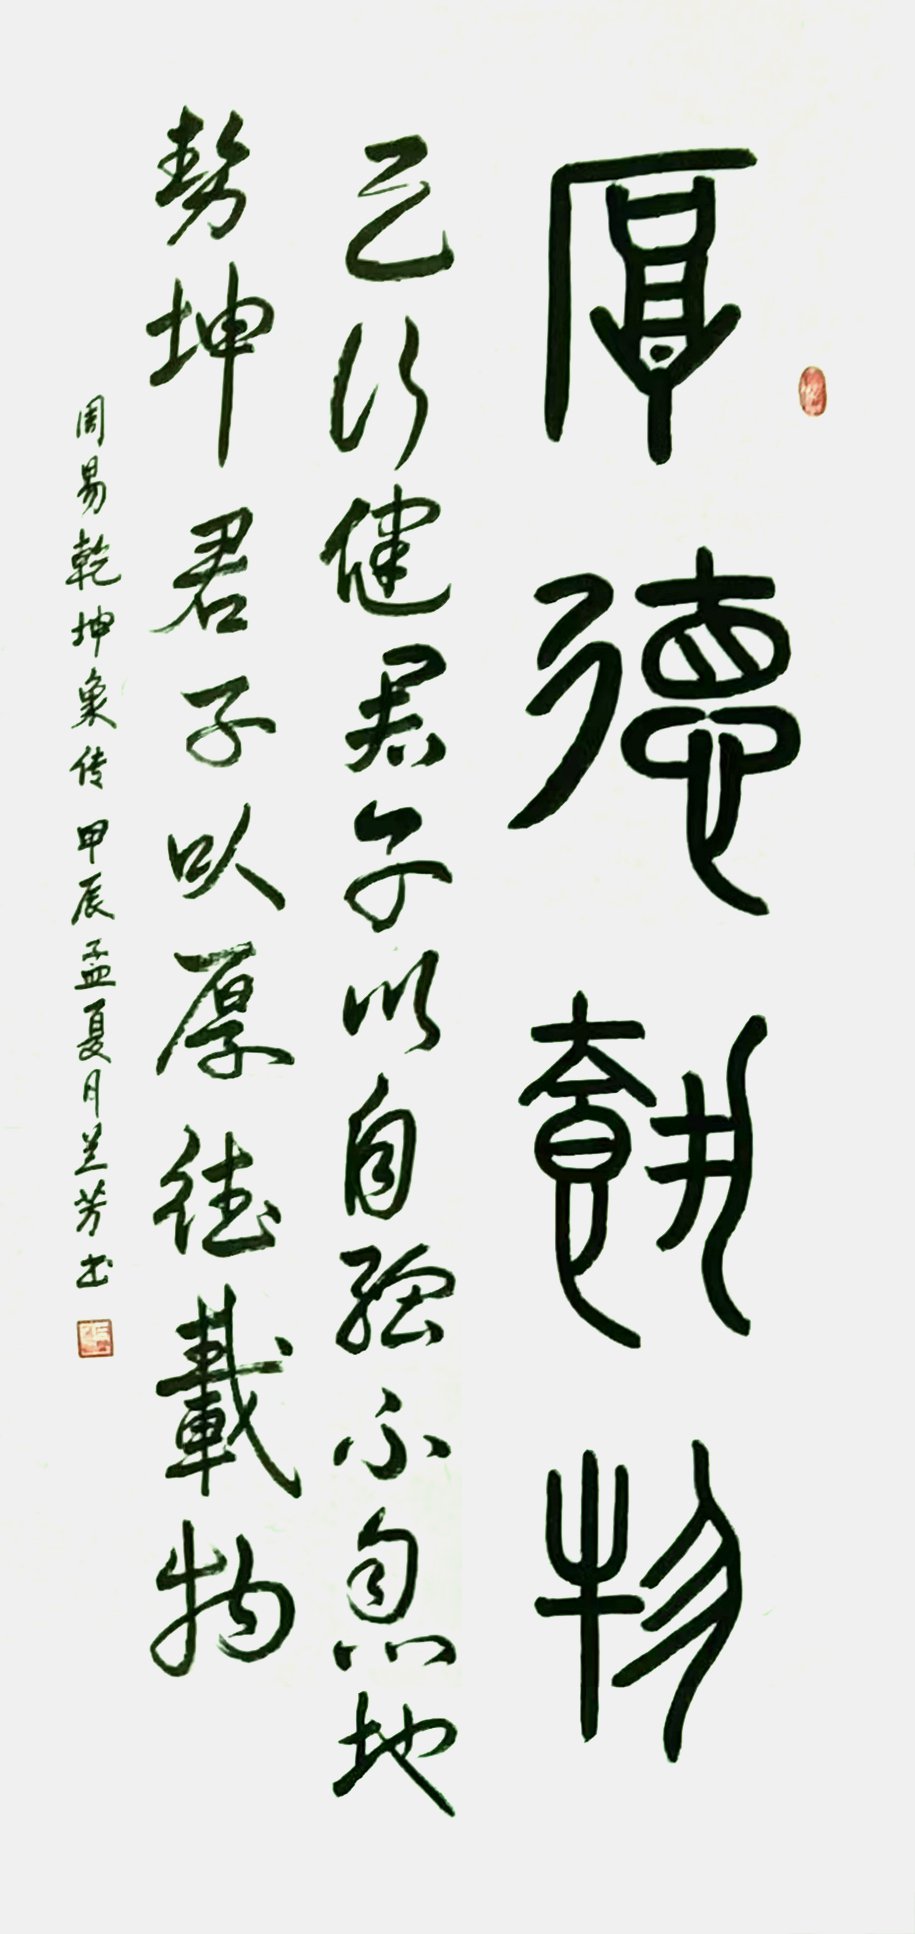 厚德載物
天行健君子以自强不息地
势坤君子以厚德載物
周易乾坤象传 甲辰孟夏月兰芳书